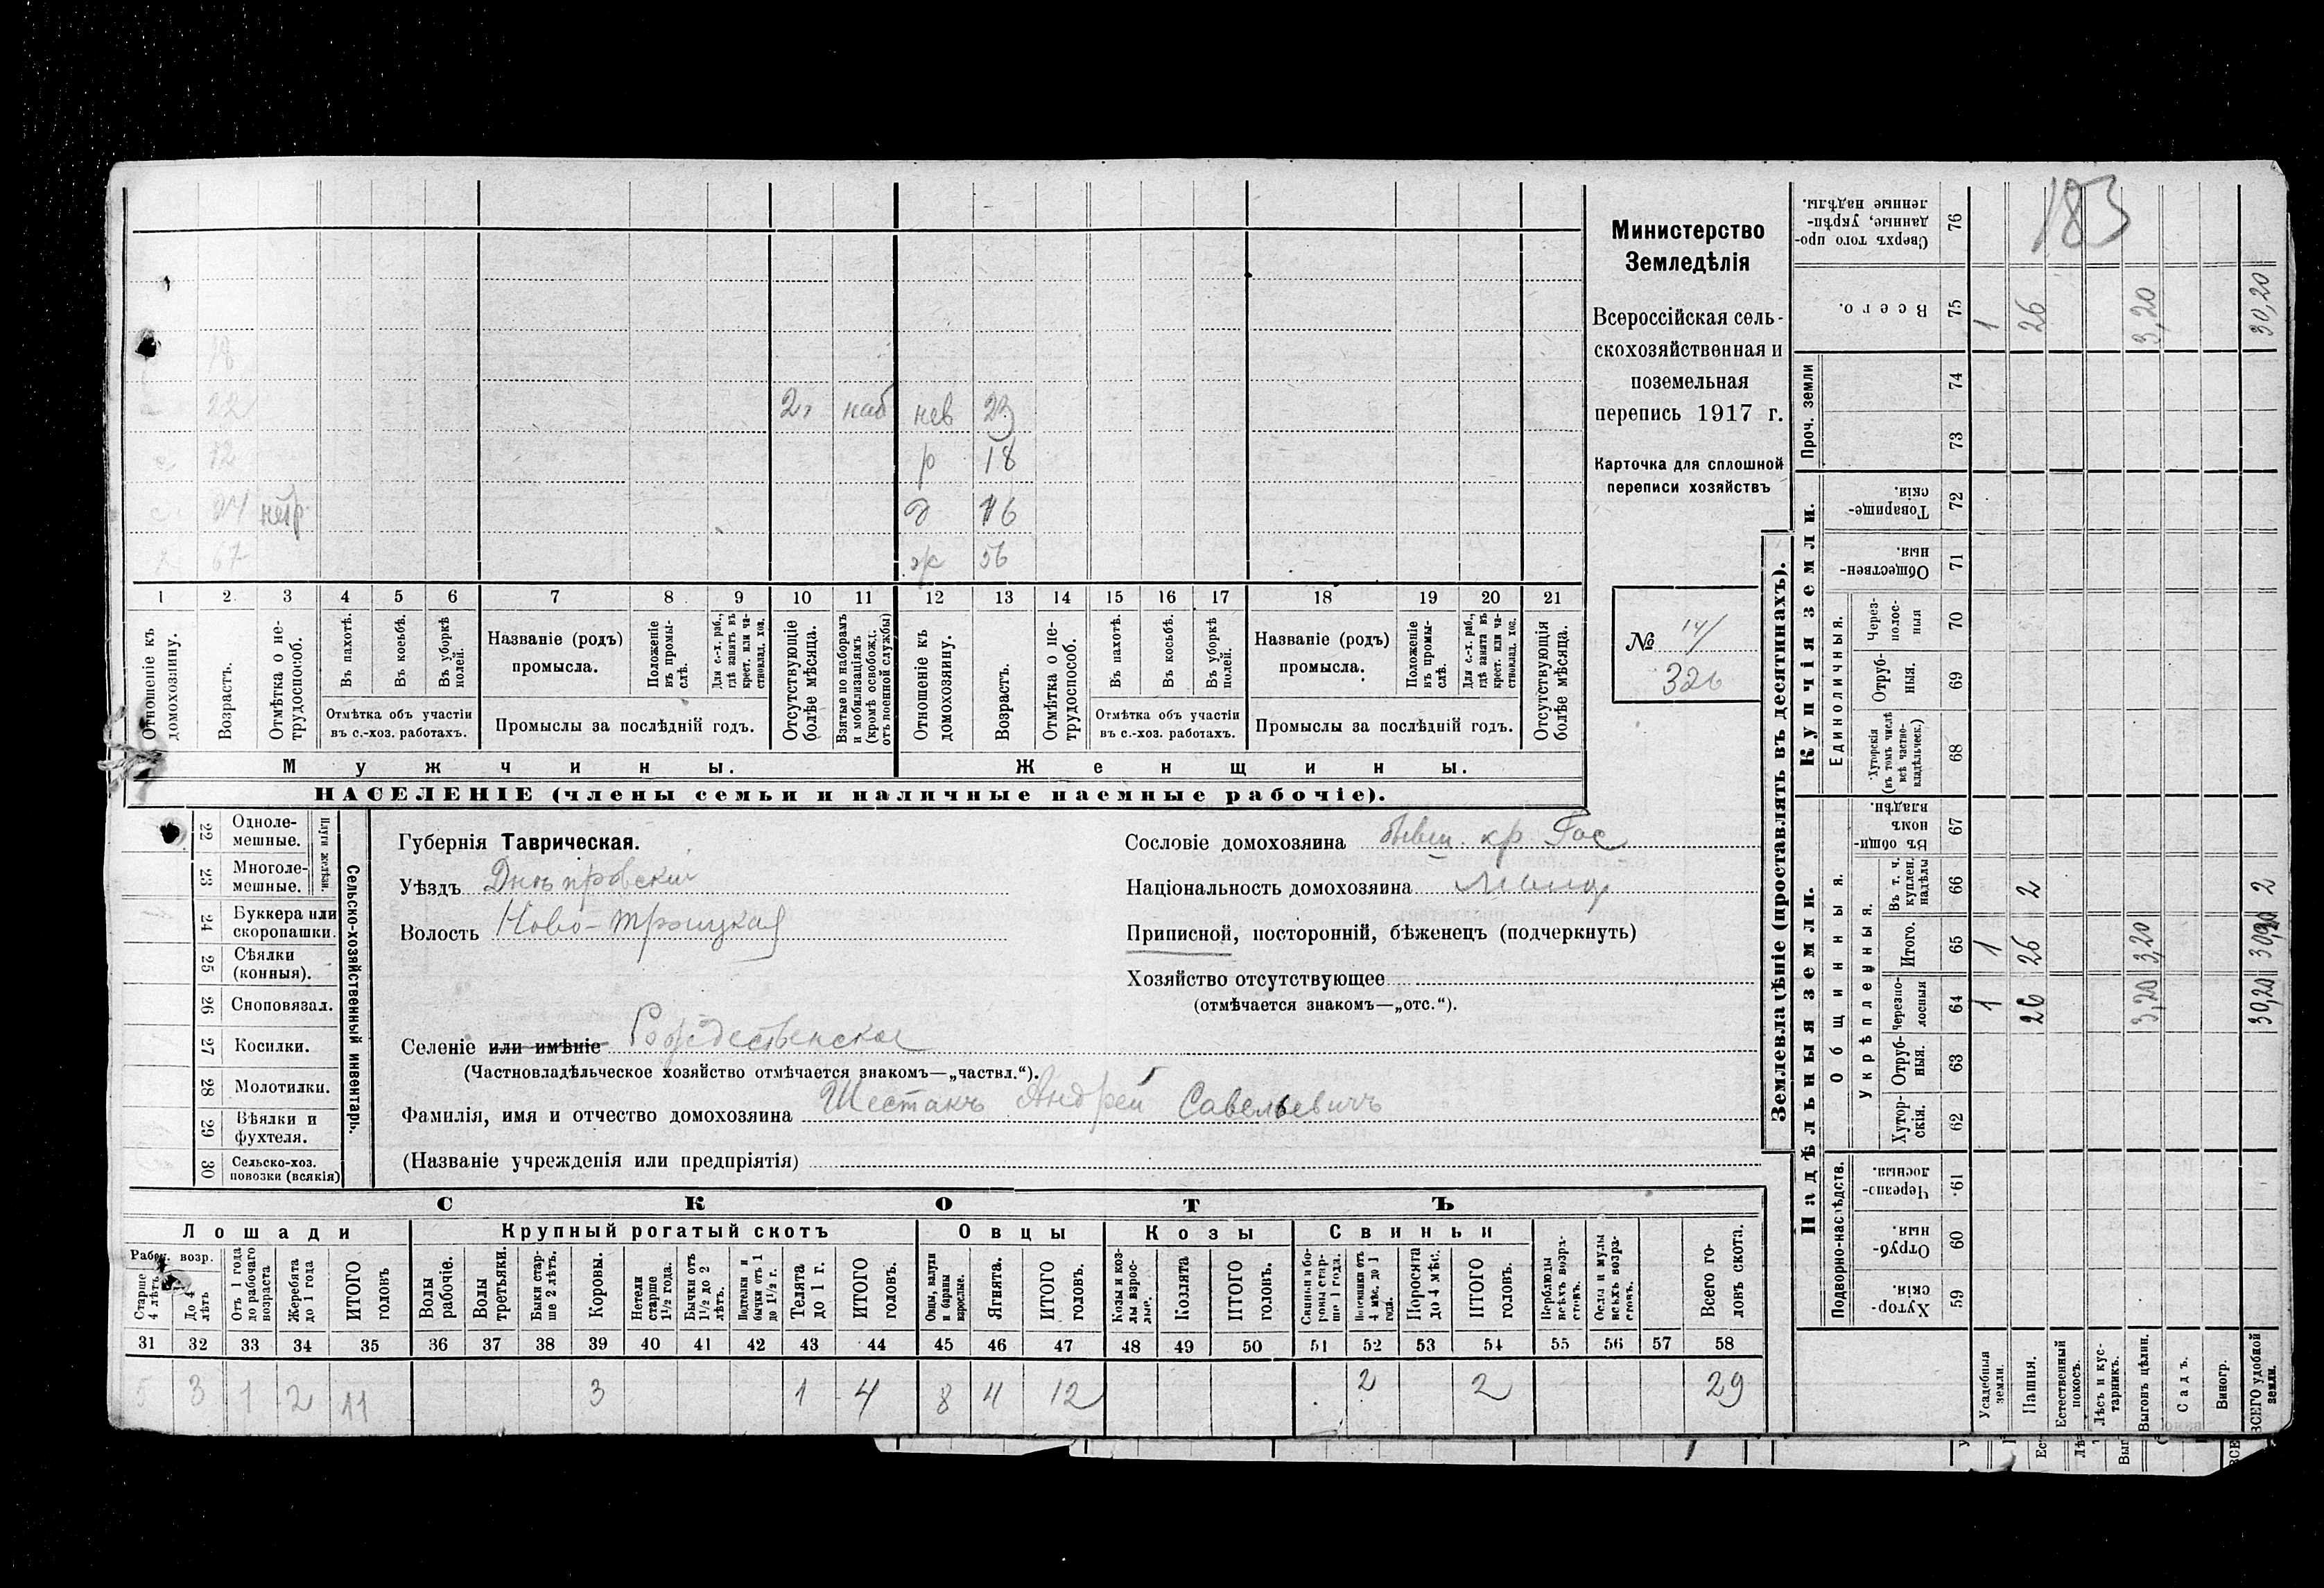 183
Министерство
Земледѣлія
Всероссійская сель-
скохозяйственная и
поземельная
перепись 1917 г.
Карточка для сплошной
переписи хозяйствъ
№ 14/
326
18
22 2г наб нев 23
12 р 18
24 нетр д 16
67 ж 56
1 2 3 4 5 6 7 8 9 10 11 12 13 14 15 16 17 18 19 20 21
Отношеніе къ домохозяину.
Возрастъ.
Отмѣтка о не-трудоспособ.
Въ пахотѣ.
Въ косьбѣ.
Въ уборкѣ полей.
Отмѣтка объ участіи
въ с.-хоз. работахъ.
Названіе (родъ)
промысла.
Положеніе въ промы-слѣ.
Для с.-х. раб., гдѣ занятъ въ крест. или ча-стновлад. хоз.
Промыслы за послѣдній годъ.
Отсутствующіе болѣе мѣсяца.
Взятые по наборамъ и мобилизаціямъ (кромѣ освобожд. отъ военной службы)
Отношеніе къ домохозяину.
Возрастъ.
Отмѣтка о не-трудоспособ.
Въ пахотѣ.
Въ косьбѣ.
Въ уборкѣ полей.
Отмѣтка объ участіи
въ с.-хоз. работахъ.
Названіе (родъ)
промысла.
Положеніе въ промы-слѣ.
Для с.-х. раб., гдѣ занята въ крест. или ча-стновлад. хоз.
Промыслы за послѣдній годъ.
Отсутствующія болѣе мѣсяца.
Мужчины. Женщины.
НАСЕЛЕНІЕ (члены семьи и наличные наемные рабочіе).
Сельско-хозяйственный инвентарь.
Плуги желѣзн.
22 Одноле-мешные.
23 Многоле-мешные.
24 Буккера или скоропашки.
25 Сѣялки (конныя).
26 Сноповязал.
27 Косилки.
28 Молотилки.
29 Вѣялки и фухтеля.
30 Сельско-хоз. повозки (всякія)
Губернія Таврическая.
Уѣздъ Днѣпровскій
Волость Ново-Троицкая
Селеніе или имѣніе Рождественское
(Частновладѣльческое хозяйство отмѣчается знакомъ—„частвл.“).
Фамилія, имя и отчество домохозяина Шестакъ Андрей Савельевичъ
(Названіе учрежденія или предпріятія)
Сословіе домохозяина бывш. кр Гос
Національность домохозяина
Приписной, посторонній, бѣженецъ (подчеркнуть)
Хозяйство отсутствующее
(отмѣчается знакомъ—„отс.“).
СКОТЪ
Лошади Крупный рогатый скотъ Овцы Козы Свиньи
Рабоч. возр.
Старше 4 лѣтъ
До 4 лѣтъ
Отъ 1 года до рабочаго возраста
Жеребята до 1 года
ИТОГО головъ
Волы рабочіе.
Волы третьяки.
Быки стар-ше 2 лѣтъ.
Коровы.
Нетели старше 1½ года.
Бычки отъ 1½ до 2 лѣтъ.
Подтелки и бычки отъ 1 до 1½ г.
Телята до 1 г.
ИТОГО головъ.
Овцы, валухи и бараны взрослые.
Ягнята.
ИТОГО головъ.
Козы и коз-лы взрос-лые.
Козлята
ИТОГО головъ.
Свиньи и бо-ровы стар-ше 1 года.
Подсвинки отъ 4 мѣс. до 1 года.
Поросята до 4 мѣс.
ИТОГО головъ.
Верблюды всѣхъ возра-стовъ.
Ослы и мулы всѣхъ возра-стовъ.
Всего го-ловъ скота.
31 32 33 34 35 36 37 38 39 40 41 42 43 44 45 46 47 48 49 50 51 52 53 54 55 56 57 58
5 3 1 2 11 3 1 4 8 4 12 2 2 29
Землевладѣніе (проставлять въ десятинахъ).
Надѣльныя земли. Купчія земли.
Подворно-наслѣдств.
Общинныя.
Укрѣпленныя.
Единоличныя.
Проч. земли
Хутор-скія. 59
Отруб-ныя 60
Черезпо-лосныя. 61
Хутор-скія. 62
Отруб-ныя. 63
Черезпо-лосныя 64
Итого. 65
Въ т. ч. куплен. надѣлы 66
Въ общи-номъ владѣн. 67
Хуторскія (въ томъ числѣ всѣ частно-владѣльческ.) 68
Отруб-ныя. 69
Через-полос-ныя 70
Обществен-ныя. 71
Товарище-скія. 72
73
74
Всего. 75
Сверхъ того про-данные, укрѣп-ленные надѣлы. 76
Усадебныя земли. 1 1 1
Пашня. 26 26 2 26
Естественный покосъ.
Лѣсъ и кус-тарникъ.
Выгонъ цѣлин. 3,20 3,20 3,20
Садъ.
Виногр.
ВСЕГО удобной земли. 30,20 30,20 2 30,20